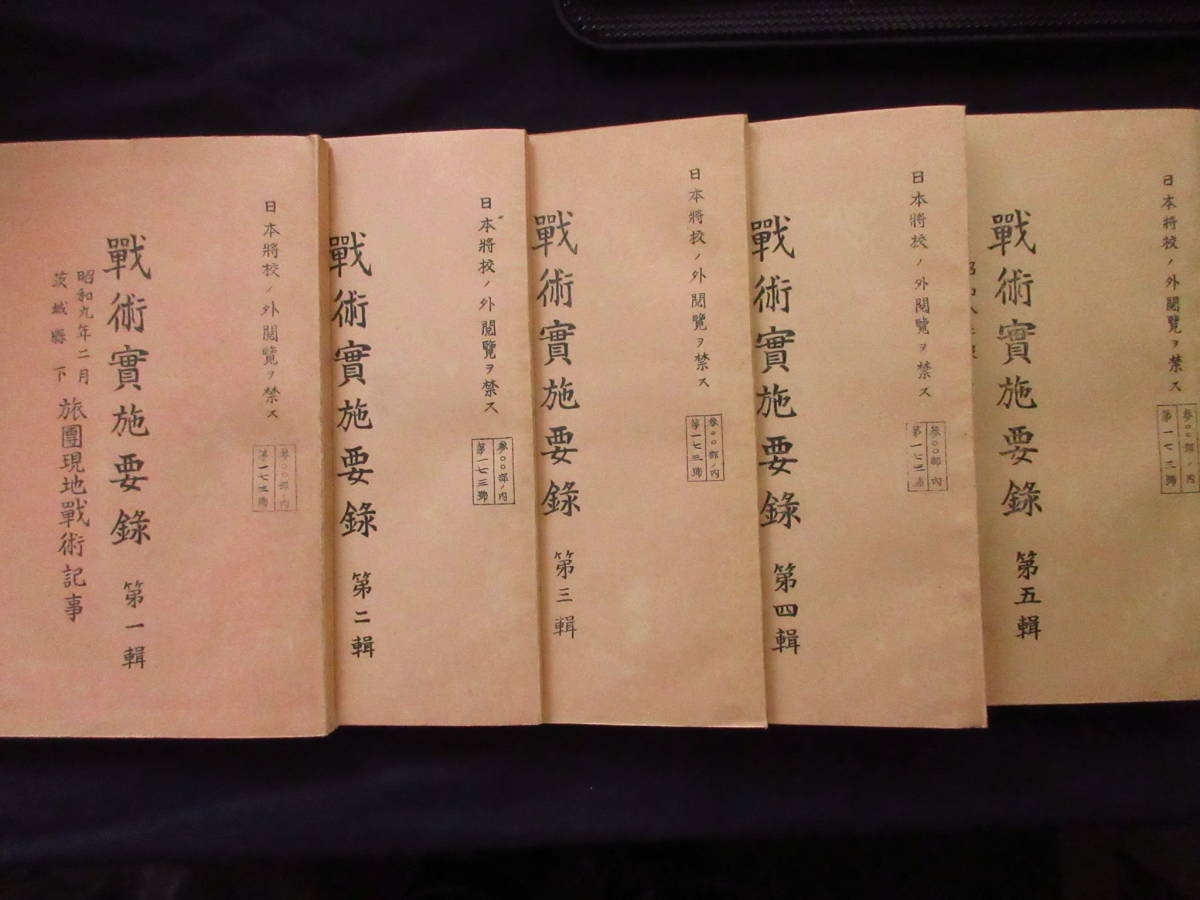 日本將校ノ外閲覽ヲ禁ス
參〇〇部ノ內
第一七三號
戰術實施要錄 第一輯
昭和九年二月
茨城縣下
旅團現地戰術記事
日本將校ノ外閲覽ヲ禁ス
參〇〇部ノ內
第一七三號
戰術實施要錄 第二輯
日本將校ノ外閲覽ヲ禁ス
參〇〇部ノ內
第一七三號
戰術實施要錄 第三輯
日本將校ノ外閲覽ヲ禁ス
參〇〇部ノ內
第一七三號
戰術實施要錄 第四輯
日本將校ノ外閲覽ヲ禁ス
參〇〇部ノ內
第一七三號
戰術實施要錄 第五輯